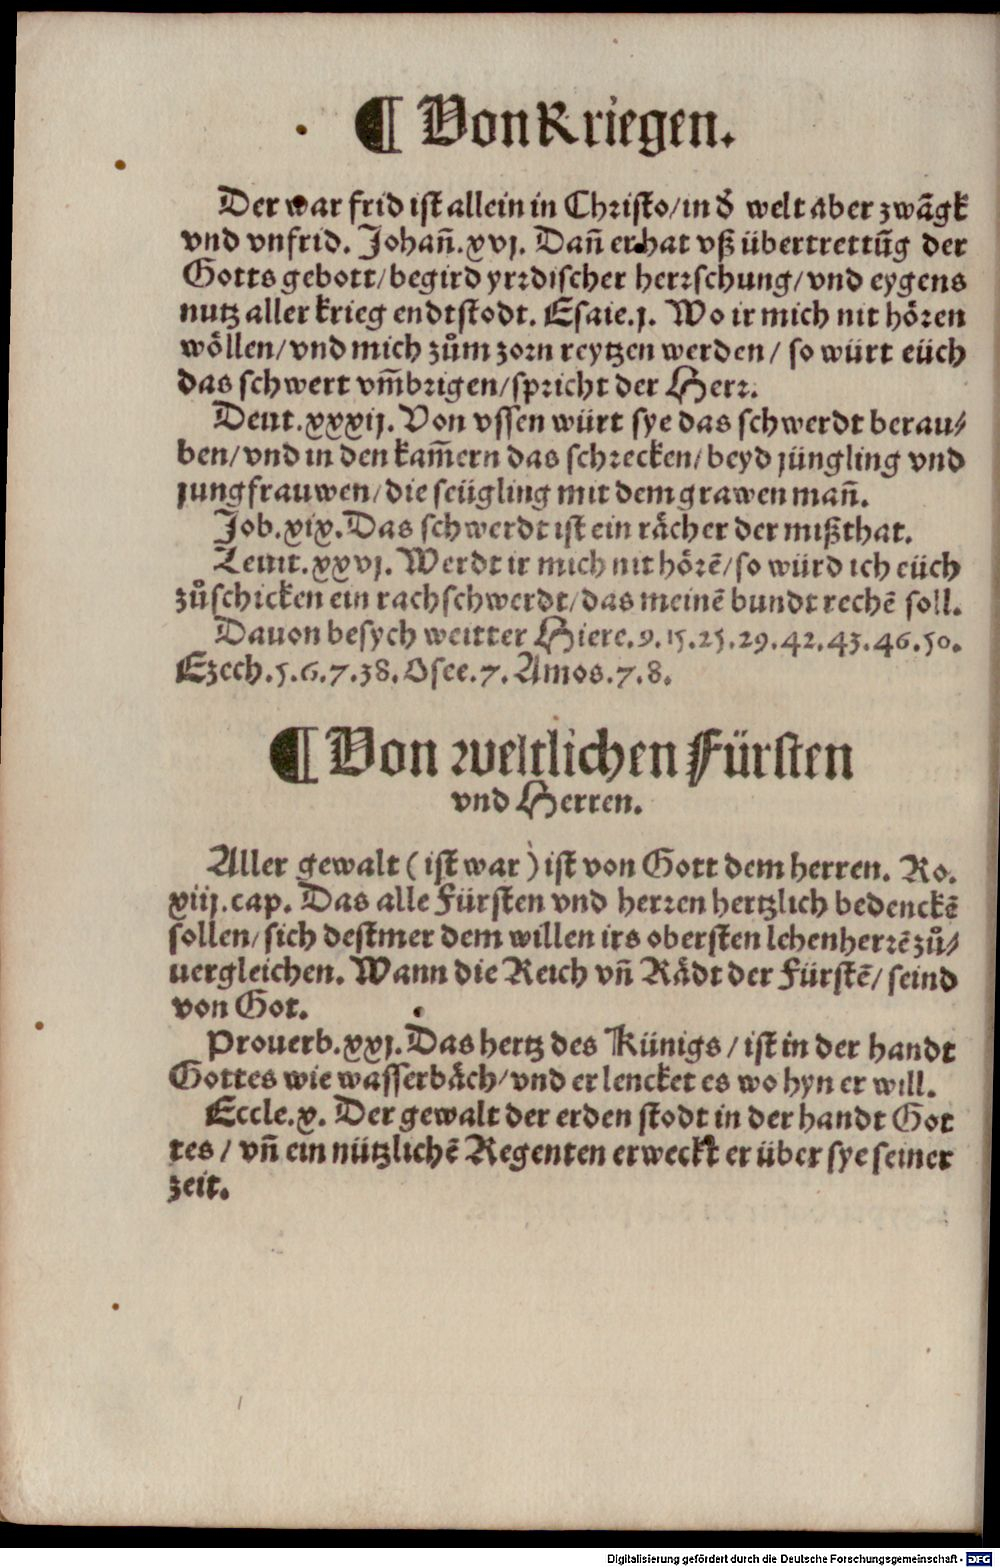 ¶ Von Kriegen.
Der war frid ist allein in Christo/in d̕ welt aber zwãgk
vnd vnfrid. Johañ.xvj. Dañ er hat vß übertrettũg der
Gotts gebott/begird yrrdischer herrschung/vnd eygens
nutz aller krieg endtstodt. Esaie.j. Wo ir mich nit hören
wöllen/vnd mich zům zorn reytzen werden/ so würt eüch
das schwert vm̃brigen/spricht der Herr.
Deut.xxxij. Von vssen würt sye das schwerdt berau⸗
ben/vnd in den kam̃ern das schrecken/beyd jüngling vnd
jungfrauwen/die seügling mit dem grawen mañ.
Job.xix. Das schwerdt ist ein rächer der mißthat.
Leuit.xxvj. Werdt ir mich nit hörẽ/so würd ich eüch
zůschicken ein rachschwerdt/das meinẽ bundt rechẽ soll.
Dauon besych weitter Hiere.9.15.25.29.42.43.46.50.
Ezech.5.6.7.38. Osee.7. Amos.7.8.
¶ Von weltlichen Fürsten
vnd Herren.
Aller gewalt (ist war) ist von Gott dem herren. Ro.
xiij.cap. Das alle Fürsten vnd herren hertzlich bedenckẽ
sollen/sich destmer dem willen irs obersten lehenherrẽ zů⸗
uergleichen. Wann die Reich vñ Rädt der Fürstẽ/ seind
von Got.
Prouerb.xxj. Das hertz des Künigs / ist in der handt
Gottes wie wasserbäch/vnd er lencket es wo hyn er will.
Eccle.x. Der gewalt der erden stodt in der handt Got
tes / vñ ein nützlichẽ Regenten erweckt er über sye seiner
zeit.
Digitalisierung gefördert durch die Deutsche Forschungsgemeinschaft - DFG